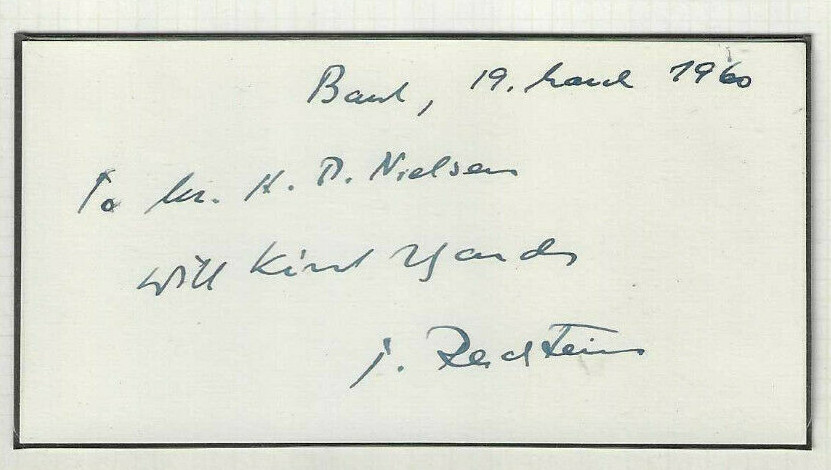 Basel, 19. March 1960
To Mr. H. D. Nielsen
With kind regards
T. Reichstein